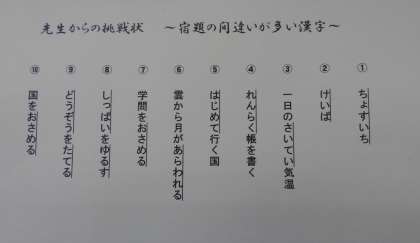 先生からの挑戦状　～宿題の間違いが多い漢字～
① ちょすいち
② けいば
③ 一日のさいてい気温
④ れんらく帳を書く
⑤ はじめて行く国
⑥ 雲から月があらわれる
⑦ 学問をおさめる
⑧ しっぱいをゆるす
⑨ どうぞうをたてる
⑩ 国をおさめる